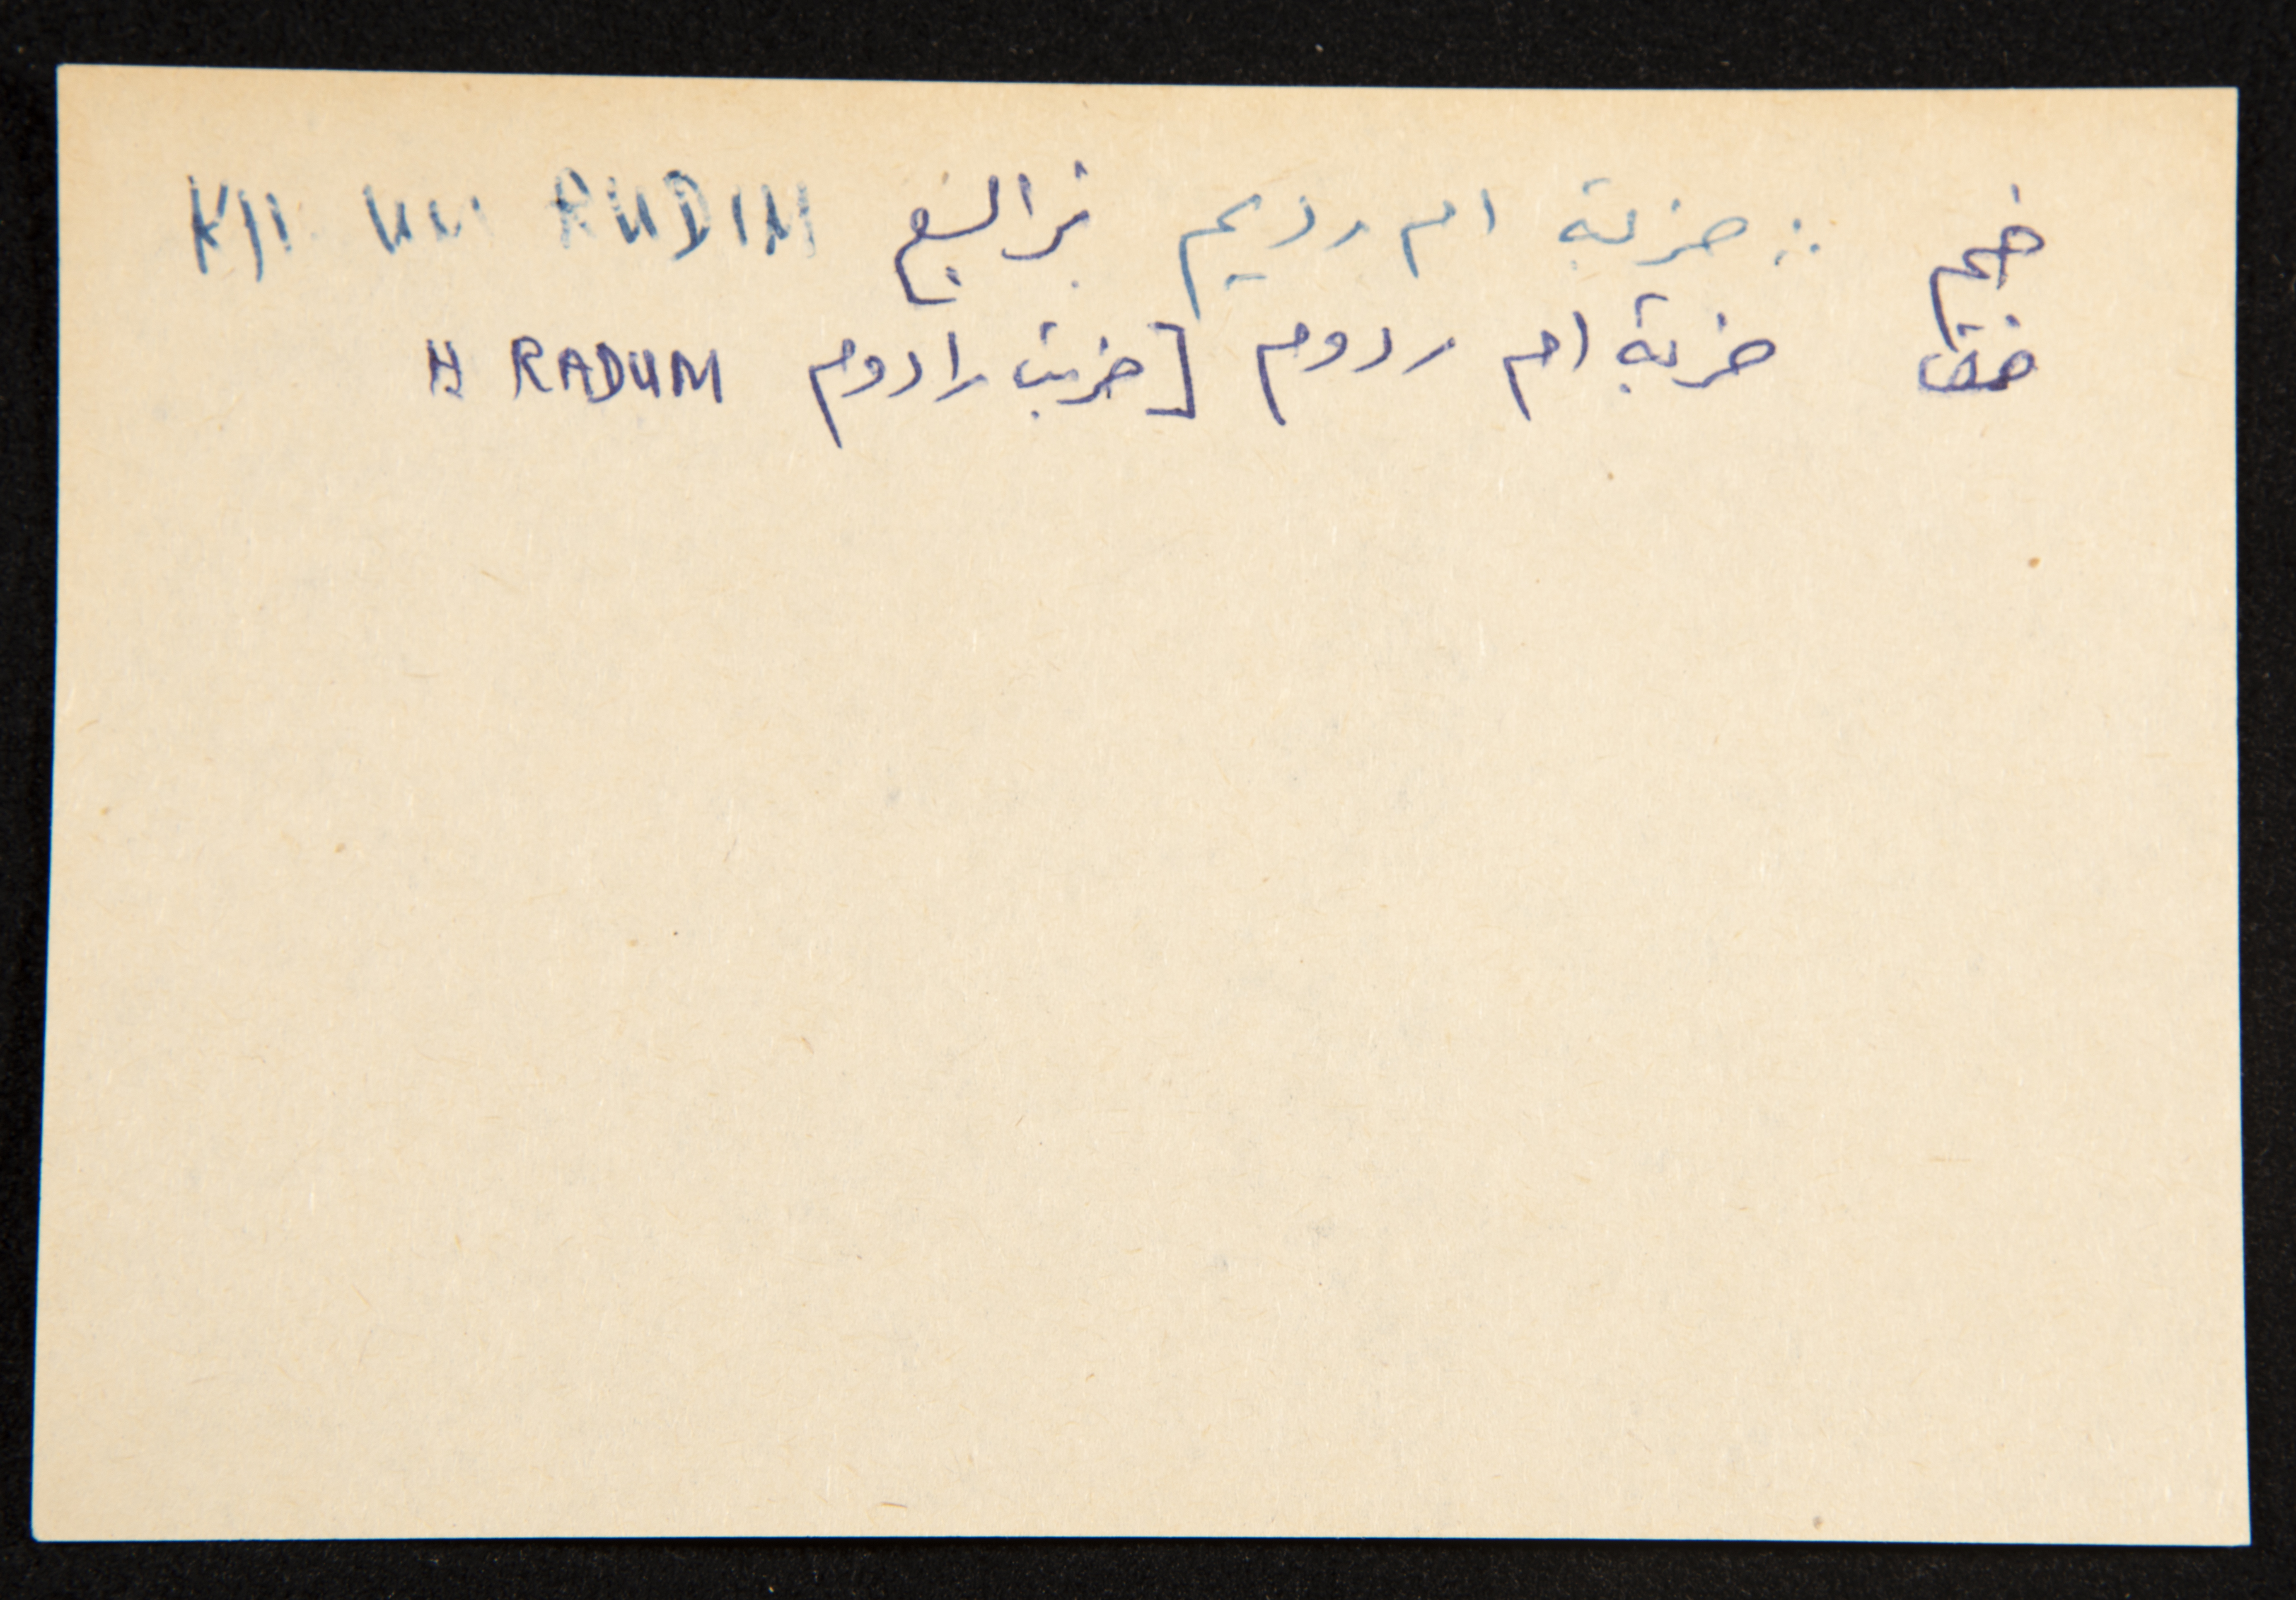 خم ∴ خربة ام رديم بئر السبع KH. UM RUDIM
خق خربة ام ردوم [خربت رادوم H RADUM